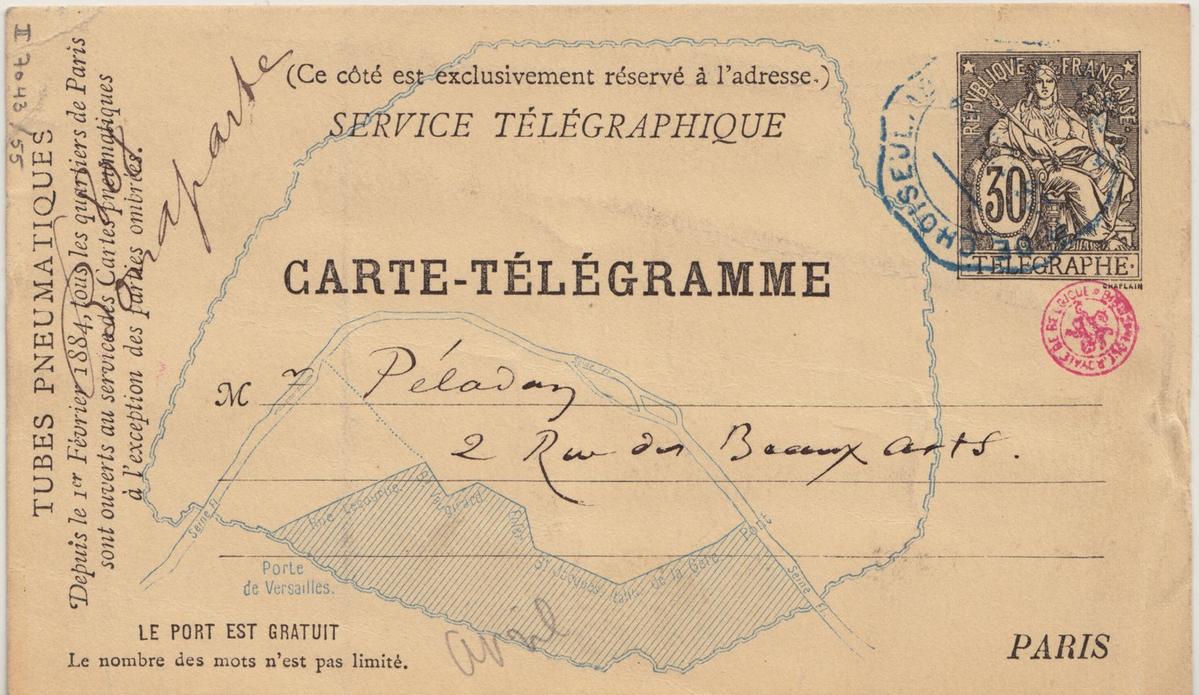 II 7043/55
TUBES PNEUMATIQUES
Depuis le 1er Février 1884, tous les quartiers de Paris
sont ouverts au service des Cartes pneumatiques
à l'exception des parties ombrées.
(Ce côté est exclusivement réservé à l'adresse.)
SERVICE TÉLÉGRAPHIQUE
CARTE-TÉLÉGRAMME
RÉPUBLIQUE FRANÇAISE
30
TÉLÉGRAPHE
CHAPLAIN
DE CHOISEUL
BIBLIOTHÈQUE ROYALE DE BELGIQUE
M Péladan
2 Rue des Beaux arts.
Seine Fl.
Seine Fl.
Rue Lecourbe
Bd Vaugirard
Enfer
St Jacques
Italie
de la Gare
Pont
Seine Fl.
Porte
de Versailles.
LE PORT EST GRATUIT
Le nombre des mots n'est pas limité.
avril
PARIS